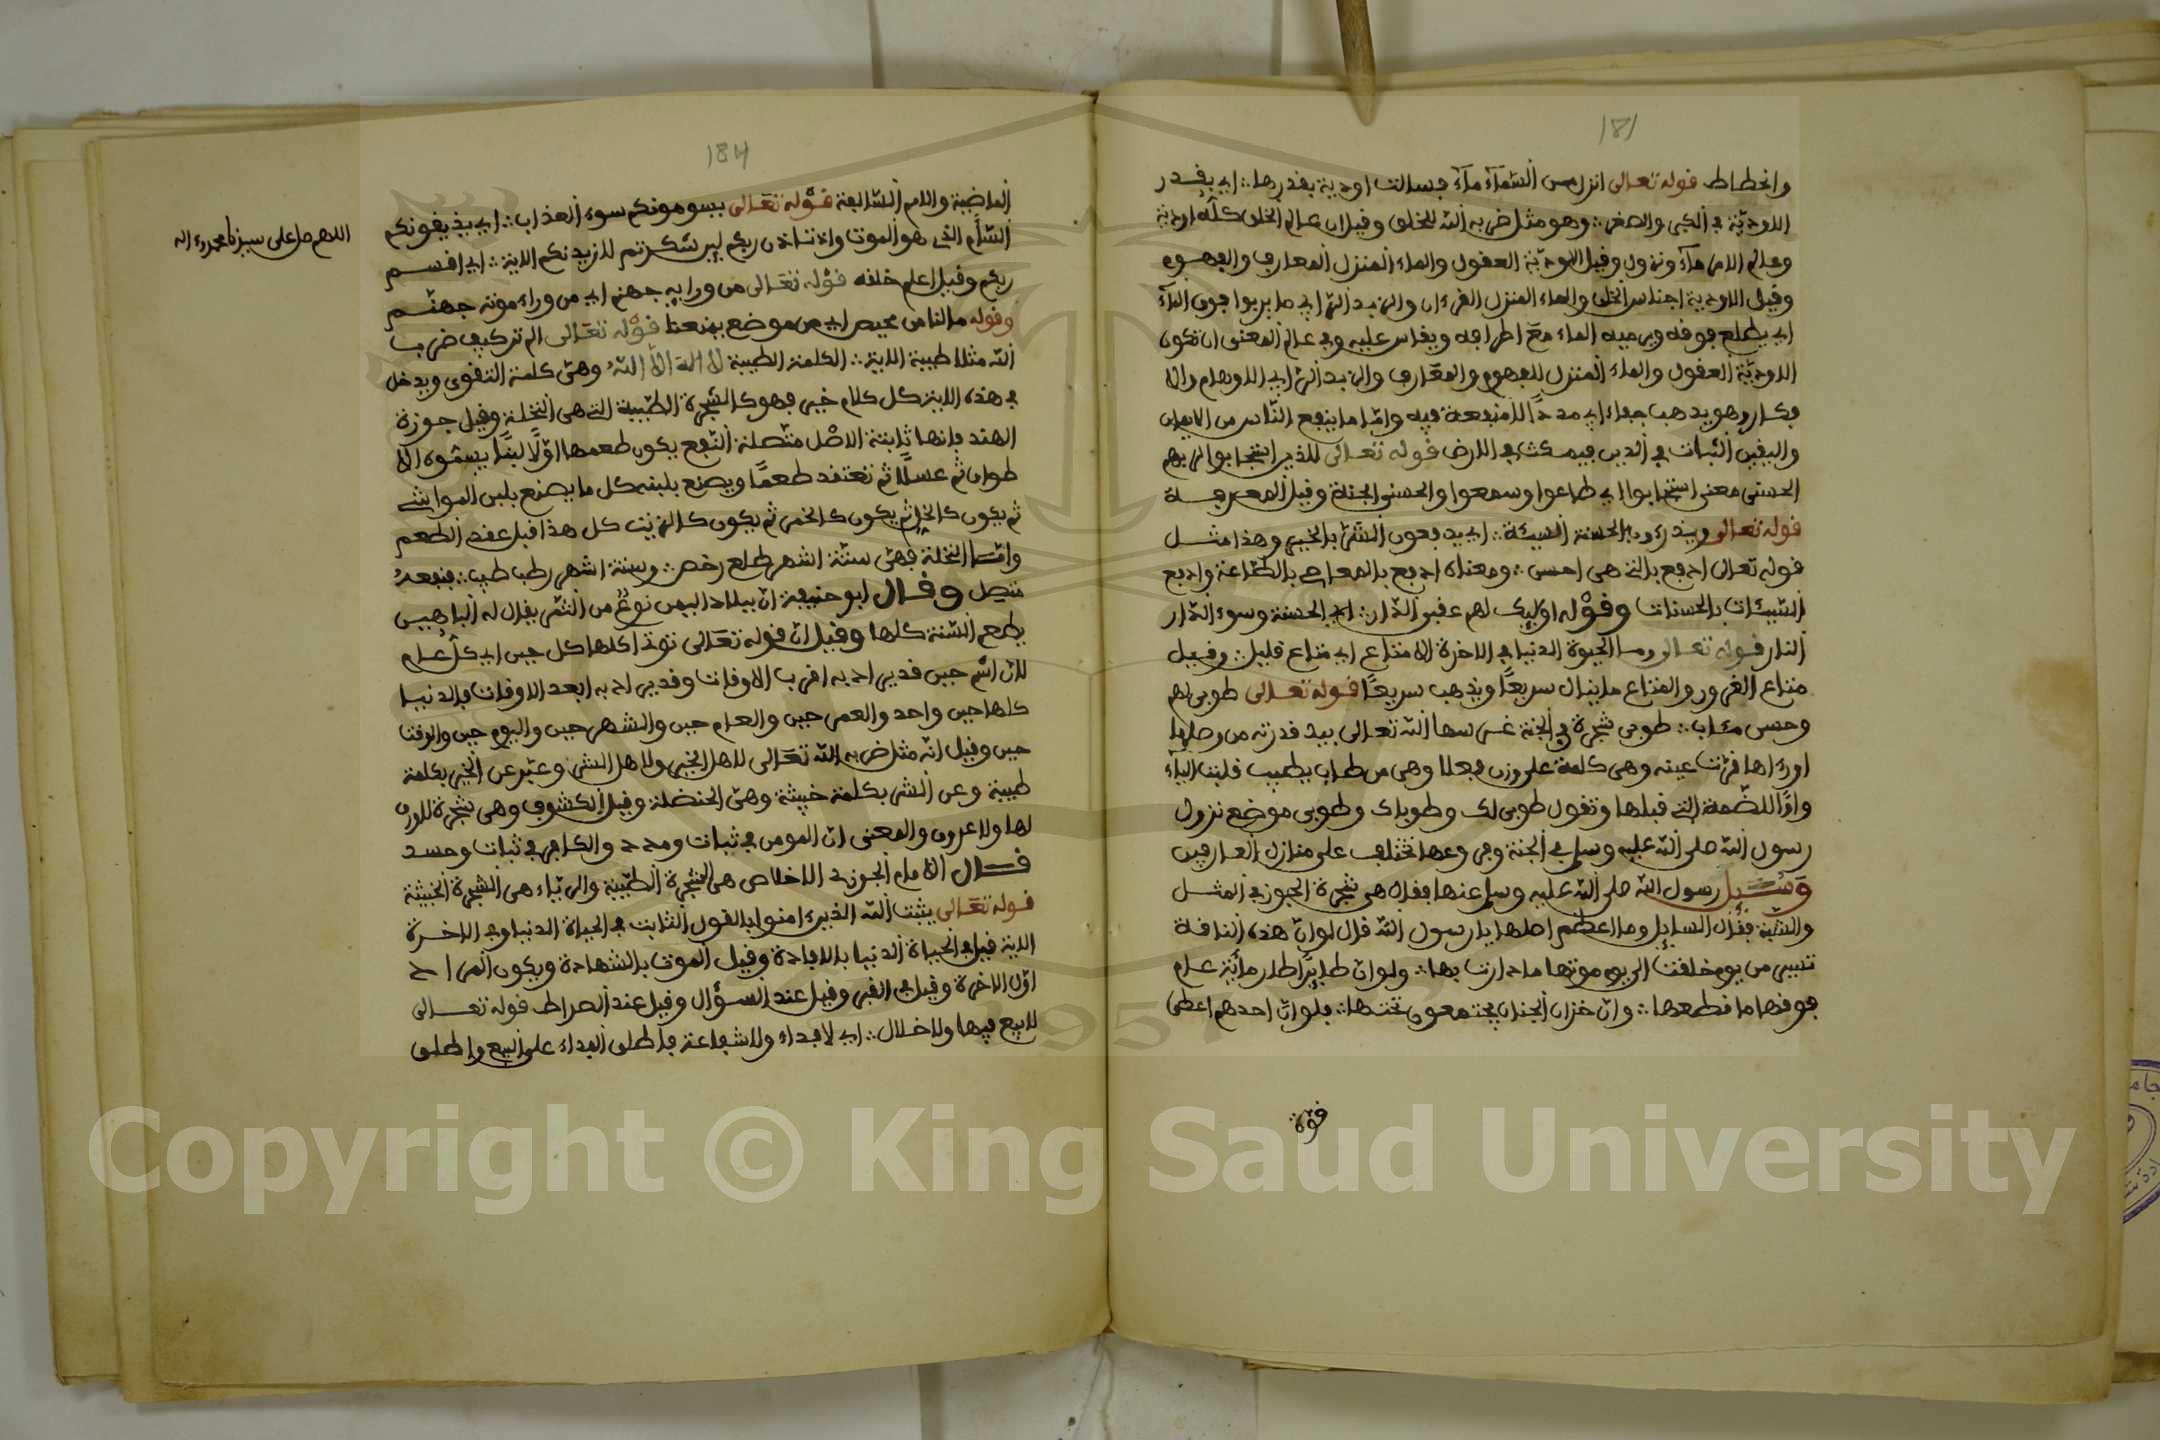 181
وانحطاط قوله تعالى انزل من السماء ماء فسالت اودية بقدرها ∴ اي بقدر
الاودية في الكبر والصغر ∴ وهو مثل ضربه الله للخلق وقيل ان عالم الخلق كله اودية
وعالم الامر ماء ونزول وقيل الاودية العقول والماء المنزل المعارف والفهوم
وقيل الاودية اجناس الخلق والماء المنزل القرءان والزبد الرابي ما يربوا فوق الماء
اي يطلع فوقه ويرميه الماء مع اطرافه ويقاس عليه وفي عالم المعنى ان تكون
الاودية العقول والماء المنزل الفهوم والمعارف والزبد الرابي الاوهام والا
فكار وهو يذهب جفاء اي مددا لا منفعة فيه واما ما ينفع الناس من الايمان
واليقين الثبات في الدين فيمكث في الارض قوله تعالى للذين استجابوا لربهم
الحسنى معنى استجابوا اي طاعوا وسمعوا والحسنى الجنة وقيل المعرفة
قوله تعالى ويدرءون بالحسنة السيئة ∴ اي يدفعون الشر بالخير وهذا مثل
قوله تعالى ادفع بالتي هي احسن ∴ ومعناه ادفع بالمعاصي بالطاعة وادفع
السيئات بالحسنات وقوله اوليك لهم عقبى الدار ∴ اي الحسنة وسوء الدار
النار قوله تعالى وما الحيوة الدنيا في الاخرة الا متاع اي متاع قليل ∴ وقيل
متاع الغرور والمتاع ما ينال سريعا ويذهب سريعا قوله تعالى طوبى لهم
وحسن مئاب ∴ طوبى شجرة في الجنة غرسها الله تعالى بيد قدرته من وصلها
اورءاها قرت عينه وهي كلمة على وزن فعلا وهي من طاب يطيب قلبت الياء
واوا للضمة التي قبلها وتقول طوبى لك وطوباك وطوبى موضع نزول
رسول الله صلى الله عليه وسلم في الجنة وفروعها تختلف على منازل العارفين
وسيل رسول الله صلى الله عليه وسلم عنها فقال هي شجرة الجوز في المثل
والشبه فقال السايل وما اعظم اصلها يا رسول الله قال لو ان هذه الناقة
تسير من يوم خلقت الى يوم موتها ما دارت بها ∴ ولو ان طايرا طار مائة عام
فوقها ما قطعها ∴ وان خزان الجنان يجتمعون تحتها ∴ فلو ان احدهم اعطى
قوة
184
الماضية والامم السابقة قوله تعالى يسومونكم سوء العذاب ∴ اي يذيقونكم
السام الذي هو الموت واذ تاذن ربكم لين شكرتم لازيدنكم الاية ∴ اي اقسم
ربكم وقيل اعلم خلقه قوله تعالى من ورايه جهنم اي من وراء موته جهنم
وقوله ما لنا من محيص اي من موضع يمنعنا قوله تعالى الم تر كيف ضرب
الله مثلا طيبة الاية ∴ الكلمة الطيبة لا اله الا الله وهي كلمة التقوى ويدخل
في هذه الاية كل كلام خير فهو كالشجرة الطيبة التي هي النخلة وقيل جوزة
الهند فانها ثابتة الاصل متصلة النفع يكون طعمها اولا لبنا يسموه الا
طوان ثم عسلا ثم تعتقد طعما ويصنع بلبنه كل ما يصنع بلبن المواشي
ثم يكون كالخل ثم يكون كالخمر ثم يكون كالزيت كل هذا قبل عقد الطعم
واما النخلة فهي ستة اشهر طلع رخص ∴ وستة اشهر رطب طيب ∴ فنفعه
متصل وقال ابو حنيفة ان ببلاد اليمن نوع من التمر يقال له الباهيس
يطعم السنة كلها وقيل ان قوله تعالى توتي اكلها كل حين اي كل عام
لان اسم حين قد يراد به اقرب الاوقات وقد يراد به ابعد الاوقات فالدنيا
كلها حين واحد والعمر حين والعام حين والشهر حين واليوم حين والوقت
حين وقيل انه مثل ضربه الله تعالى لاهل الخير ولاهل الشر وعبر عن الخير بكلمة
طيبة وعن الشر بكلمة خبيثة وهي الحنضلة وقيل الكشوف وهي شجرة لا ورق
لها ولا عروق والمعنى ان المومن في ثبات ومدد والكافر في ثبات وحسد
قال الامام الجوزي الاخلاص هي الشجرة الطيبة والرياء هي الشجرة الخبيثة
قوله تعالى يثبت الله الذين ءامنوا بالقول الثابت في الحياة الدنيا وفي الاخرة
الاية قيل في الحياة الدنيا بالافادة وقيل الموت بالشهادة ويكون المراد
اول الاخرة وقيل في القبر وقيل عند السؤال وقيل عند الصراط قوله تعالى
لا بيع فيها ولا خلال ∴ اي لا فداء ولا شفاعة فاطلق الفداء على البيع واطلق
اللهم صل على سيدنا محمد وءاله
Copyright © King Saud University
1957